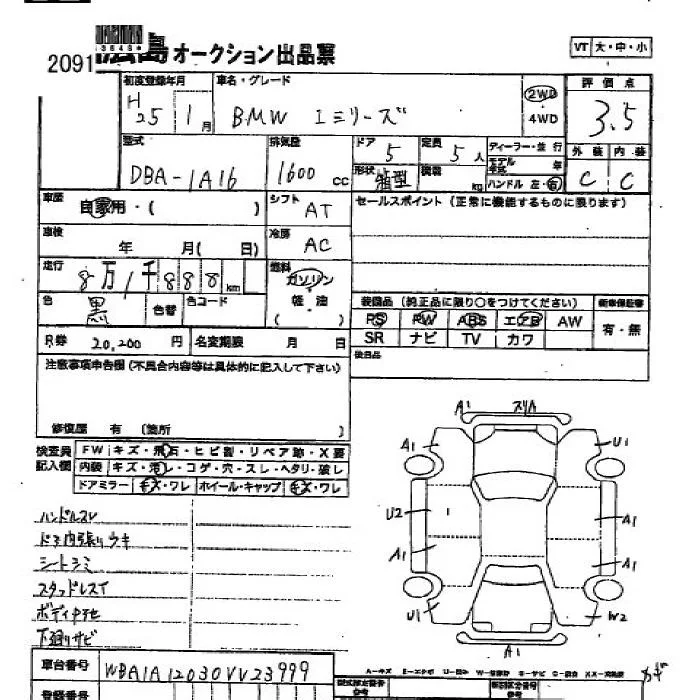 2091 広島オークション出品票
VT 大・中・小
初度登録年月 車名・グレード 2WD 評価点
H25 1月 BMW 1シリーズ 4WD 3.5
型式 排気量 ドア 定員 ディーラー・並行
DBA-1A16 1600cc 5 5人 モデル年式 年 外装 内装
形状 箱型 積載 kg ハンドル 左・右 C C
車歴 自家用・( ) シフト AT セールスポイント (正常に機能するものに限ります)
車検 年 月( 日) 冷房 AC
走行 8万1千888km 燃料 ガソリン
色 黒 色替 色コード 軽油 ( )
装備品 (純正品に限り○をつけてください) 新車保証書
PS PW ABS エアB AW 有・無
SR ナビ TV カワ
R券 20,200円 名変期限 月 日 後日品
注意事項申告欄 (不具合内容等は具体的に記入して下さい)
修復歴 有 (箇所 )
検査員記入欄 FW キズ・飛石・ヒビ割・リペア跡・X要
内装 キズ・汚レ・コゲ・穴・スレ・ヘタリ・破レ
ドアミラー キズ・ワレ ホイール・キャップ キズ・ワレ
A1 スリA
A1 U1
U2 A1
A1 A1
U1 W2
A1
ハンドルスレ
ドア内張りウキ
シートシミ
スタッドレスT
ボディ中他
下廻りサビ
車台番号 WBA1A12030VV23999
A-キズ E-エクボ U-凹ミ W-補修跡 S-サビ C-腐食 XX-交換済
登録番号